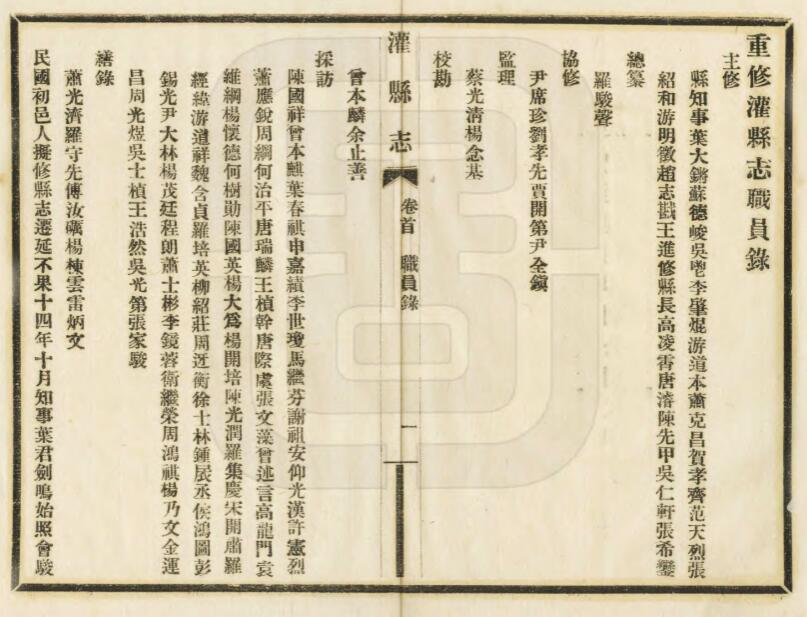 重修灌縣志職員錄
主修
縣知事葉大鏘蘇德峻吳鬯李肇焜游道本蕭克昌賀孝齊范天烈張
紹和游明徵趙志戡王進修縣長高凌霄唐濬陳先甲吳仁軒張希鑾
總纂
羅駿聲
協修
尹席珍劉孝先賈開第尹全鎭
監理
蔡光淸楊念基
校勘
灌縣志
卷首
職員錄
一
曾本麟余止善
採訪
陳國祥曾本麒葉春祺申嘉績李世瓊馬繼芬謝祖安仰光漢許憲烈
蕭應銳周綱何治平唐瑞麟王楨幹唐際虞張文藻曾述言高龍門袁
維綱楊懷德何樹勛陳國英楊大爲楊開培陳光潤羅集慶宋開肅羅
經緯游道祥魏含貞羅培英柳紹莊周迓衡徐士林鍾扆丞侯鴻圖彭
錫光尹大林楊茂廷程朗蕭士彬李鏡蓉衛繼榮周鴻祺楊乃文金運
昌周光煜吳士楨王浩然吳光第張家駿
繕錄
蕭光濟羅守先傅汝礪楊棟雲雷炳文
民國初邑人擬修縣志遷延不果十四年十月知事葉君劍鳴始照會駿